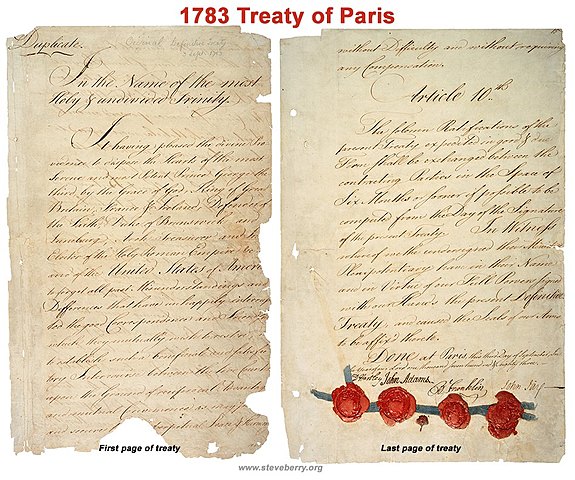 1783 Treaty of Paris
Duplicate.
Original Definitive Treaty
In the Name of the most
Holy & undivided Trinity.
It having pleased the divine Pro
vidence to dispose the Hearts of the most
serene and most Potent Prince George the
third, by the Grace of God, King of Great
Britain, France & Ireland, Defender of
the Faith, Duke of Brunswick and
Lunebourg, Arch Treasurer and
Elector of the Holy Roman Empire
and of the United States of Amer
to forget all past Misunderstandings and
Differences that have unhappily interrup
ted the good Correspondence and Friend
which they mutually wish to restore;
to establish such a beneficial and satisfac
between the two Count
upon the Ground of reciprocal
and mutual Convenience as may
and secure to both perpetual Peace & Harmon
First page of treaty
without Difficulty and without requiring
any Compensation.
Article 10.th
The solemn Ratifications of the
present Treaty expedited in good & due
Form shall be exchanged between the
contracting Parties in the Space of
Six Months or sooner if possible to be
computed from the Day of the Signature
of the present Treaty. In Witness
whereof we the undersigned their Ministers
Plenipotentiary have in their Name
and in Virtue of our Full Powers signed
with our Hands the present Definitive
Treaty, and caused the Seals of our Arms
to be affix'd thereto.
Done at Paris, this third day of September,
D Hartley John Adams. B Franklin John Jay
Last page of treaty
www.steveberry.org